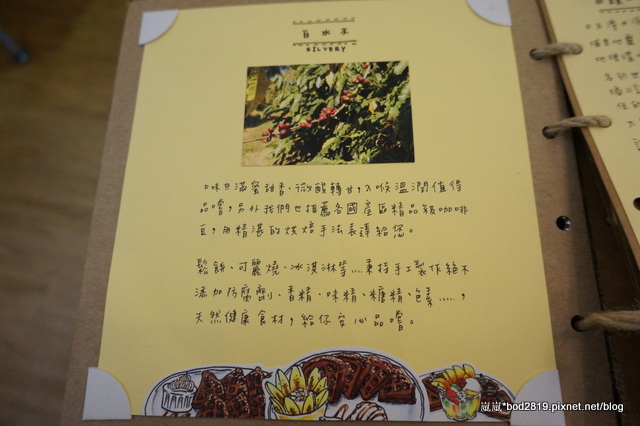 白水木
SILVERY
口味充滿蜜甜香、微酸轉甘，入喉溫潤值得
品嚐，另外我們也推薦各國產區精品級咖啡
豆，用精湛的烘焙手法表達給您。
鬆餅、可麗燒、冰淇淋等…秉持手工製作絕不
添加防腐劑、香精、味精、糖精、色素…，
天然健康食材，給你安心品嚐。
嵐嵐*bod2819.pixnet.net/blog